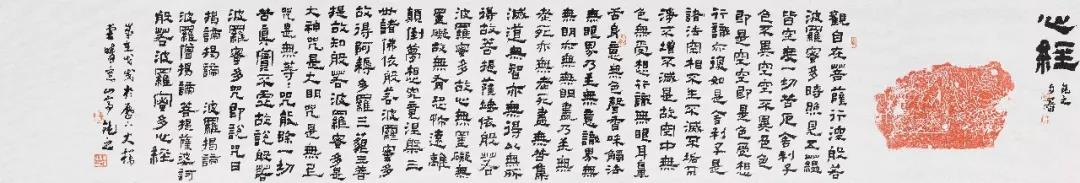 心經
觀自在菩薩行深般若
波羅蜜多時照見五蘊
皆空度一切苦厄舍利子
色不異空空不異色色
即是空空即是色受想
行識亦復如是舍利子是
諸法空相不生不滅不垢不
淨不增不減是故空中無
色無受想行識無眼耳鼻
舌身意無色聲香味觸法
無眼界乃至無意識界無
無明亦無無明盡乃至無
老死亦無老死盡無苦集
滅道無智亦無得以無所
得故菩提薩埵依般若
波羅蜜多故心無罣礙無
罣礙故無有恐怖遠離
顛倒夢想究竟涅槃三
世諸佛依般若波羅蜜多
故得阿耨多羅三藐三菩
提故知般若波羅蜜多是
大神咒是大明咒是無上
咒是無等等咒能除一切
苦真實不虛故說般若
波羅蜜多咒即說咒曰
揭諦揭諦 波羅揭諦
波羅僧揭諦菩提薩婆訶
般若波羅蜜多心經